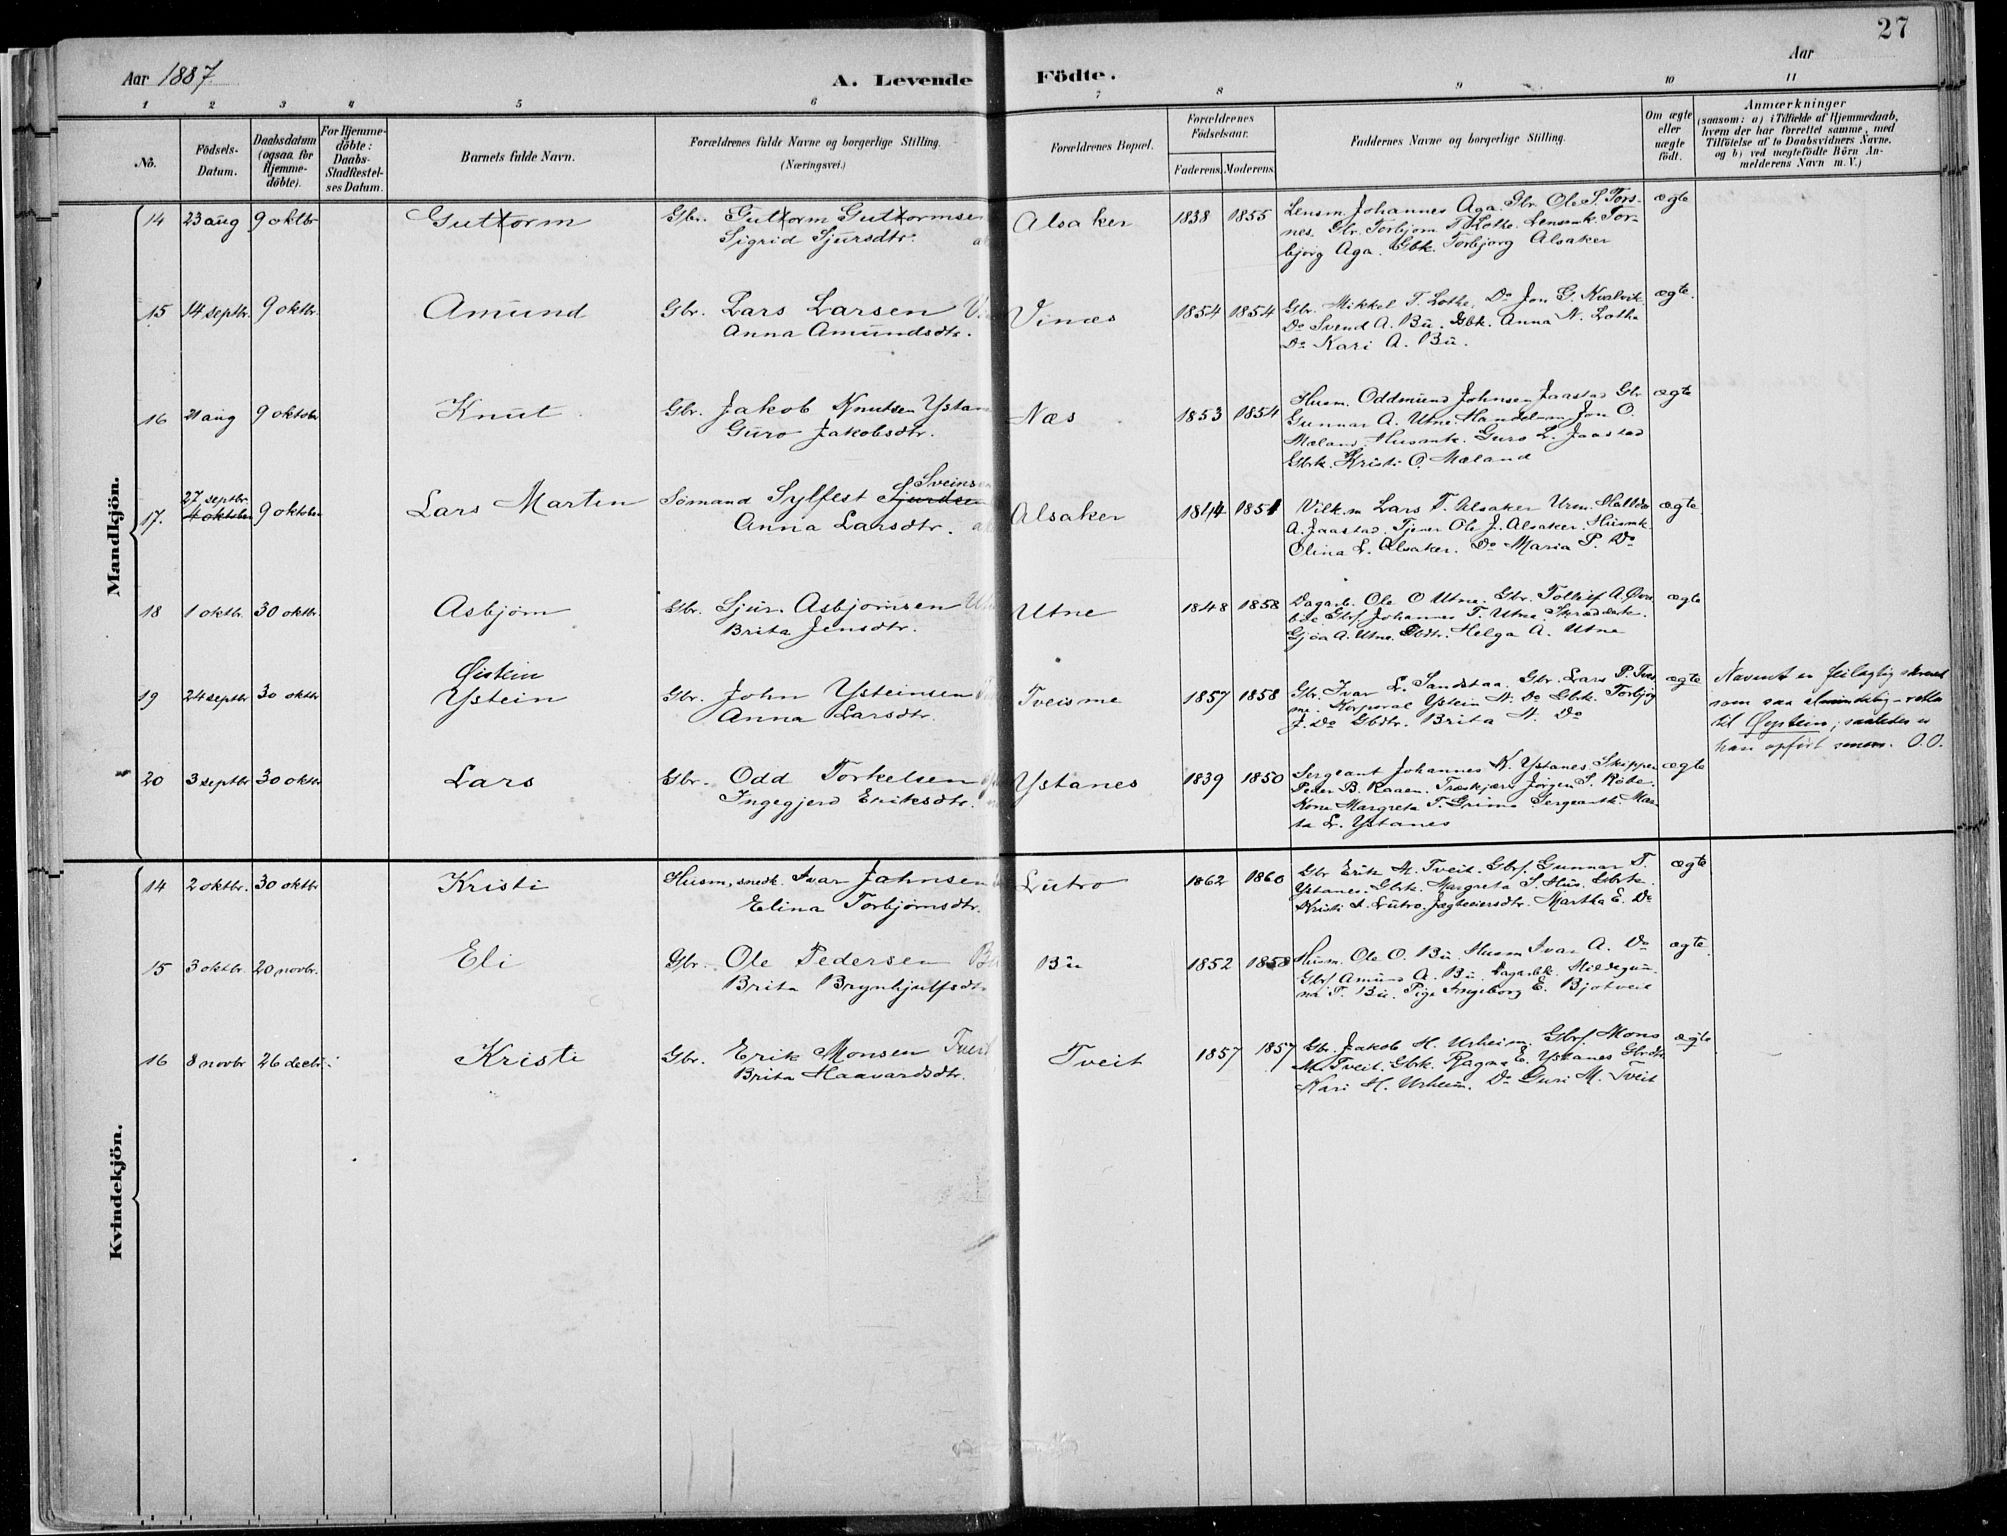 27
Aar 1887.
A. Levende Födte.
Aar
1 2 3 4 5 6 7 8 9 10 11
No.
Födsels-Datum.
Daabsdatum (ogsaa for Hjemme-döbte).
For Hjemme-döbte: Daabs-Stadfæstel-ses Datum.
Barnets fulde Navn.
Forældrenes fulde Navne og borgerlige Stilling.
(Næringsvei.)
Forældrenes Bopæl.
Forældrenes Födselsaar.
Faderens. Moderens.
Faddernes Navne og borgerlige Stilling.
Om ægte eller uægte födt.
Anmærkninger
(saasom: a) i Tilfælde af Hjemmedaab,
hvem der har forrettet samme, med
Tilföielse af to Daabsvidners Navne,
og b) ved uægtefödte Börn An-
melderens Navn m. V.)
Mandkjön.
14 23 aug 9 oktbr Guttorm Gbr. Guttorm Guttormsen Alsaker 1838 1855 Lensm. Johannes Aga. Gbr. Ole S. Tors- ægte
Sigrid Sjursdtr. nes. Gbr. Torbjørn T. Lothe. Lensmk. Tor-
bjørg Aga. Gbk. Torbjørg Alsaker
15 14 septbr. 9 oktbr. Amund Gbr. Lars Larsen Vinæs 1854 1854 Gbr. Mikkel T. Lothe, Do Jon G. Kvalvik ægte.
Anna Amundsdtr. Do Svend A. Bu. Gbk. Anna N. Lothe
Do Kari A. Bu.
16 21 aug 9 oktobr Knut Gbr. Jakob Knutsen Ystanes Næs 1853 1854 Husm. Oddmund Johnsen Jaastad Gbr ægte
Guro Jakobsdtr. Gunnar A. Utne. Handelsm. Jon O.
Mæland. Husmk. Guro L. Jaastad
Gbrk. Kristi O. Mæland
27 septbr. Sveinsen
17. 4 oktober 9 oktober Lars Martin Sømand Sylfest Sjurdsen Alsaker 1844 1851 Vilk.m Lars T. Alsaker Urm. Halldor ægte
Anna Larsdtr. A. Jaastad. Tjener Ole J. Alsaker. Husmk
Olina L. Alsaker. Do Maria P. Do
18 1 oktbr. 30 oktbr. Asbjørn Gbr. Sjur Asbjørnsen Utne 1848 1858 Dagarb. Ole O Utne. Gbr. Tollef A. ægte
Brita Jensdtr. Gbrf Johannes T. Utne.
Gjøa A. Utne. Gbdtr. Helga A. Utne
Øistein
19 24 septbr 30 oktbr Ystein Gbr. John Ysteinsen Tveisme 1857 1858 Gbr. Ivar L. Sandstaa. Gbr. Lars P. Tveis ægte Navnet er feilagtig skrevet
Anna Larsdtr. me. Korporal Ystein H. Do Gbrk. Torbjørg som saa almindelig – rettes
J. Do Gbdtr. Brita H. Do til Øystein; saaledes er
han opført senere. O.O.
20 3 septbr 30 oktbr Lars Gbr. Odd Torkelsen Ystanes 1839 1850 Sergeant Johannes K. Ystanes Skipper ægte
Ingegjerd Eriksdtr. Peder B. Raaen. Træskjær Jørgen S. Røte.
Kone Margreta T. Grimo Sergeantk. Mar-
ta L. Ystanes
Kvindekjön.
14 2 oktbr. 30 oktbr Kristi Husm, snedk. Ivar Johnsen Lutro 1862 1860 Gbr Erik H. Tveit. Gbrf. Gunnar T. ægte
Elina Torbjørnsdtr. Ystanes. Gbrk. Margreta S. Hus. Gbrk.
Kristi A. Lutro. Jægteiersdtr. Martha E. Do
15 3 oktbr. 20 novbr. Eli Gbr. Ole Pedersen Bu 1852 1858 Husm. Ole O. Bu. Husm Ivar A. Do ægte
Brita Brynhjulfsdtr Gbrf Amund A. Bu. Dagarbk. Hildegun-
na T. Bu. Pige Ingeborg E. Bjotveit
16 8 novbr 26 decbr. Kristi Gbr. Erik Monsen Tveit Tveit 1857 1857 Gbr. Jakob H. Urheim. Gbrf. Mons ægte
Brita Haavardsdtr. M. Tveit. Gbrk. Ragna E. Ystanes Gbrdtr
Kari H. Urheim. Do Guri M. Tveit